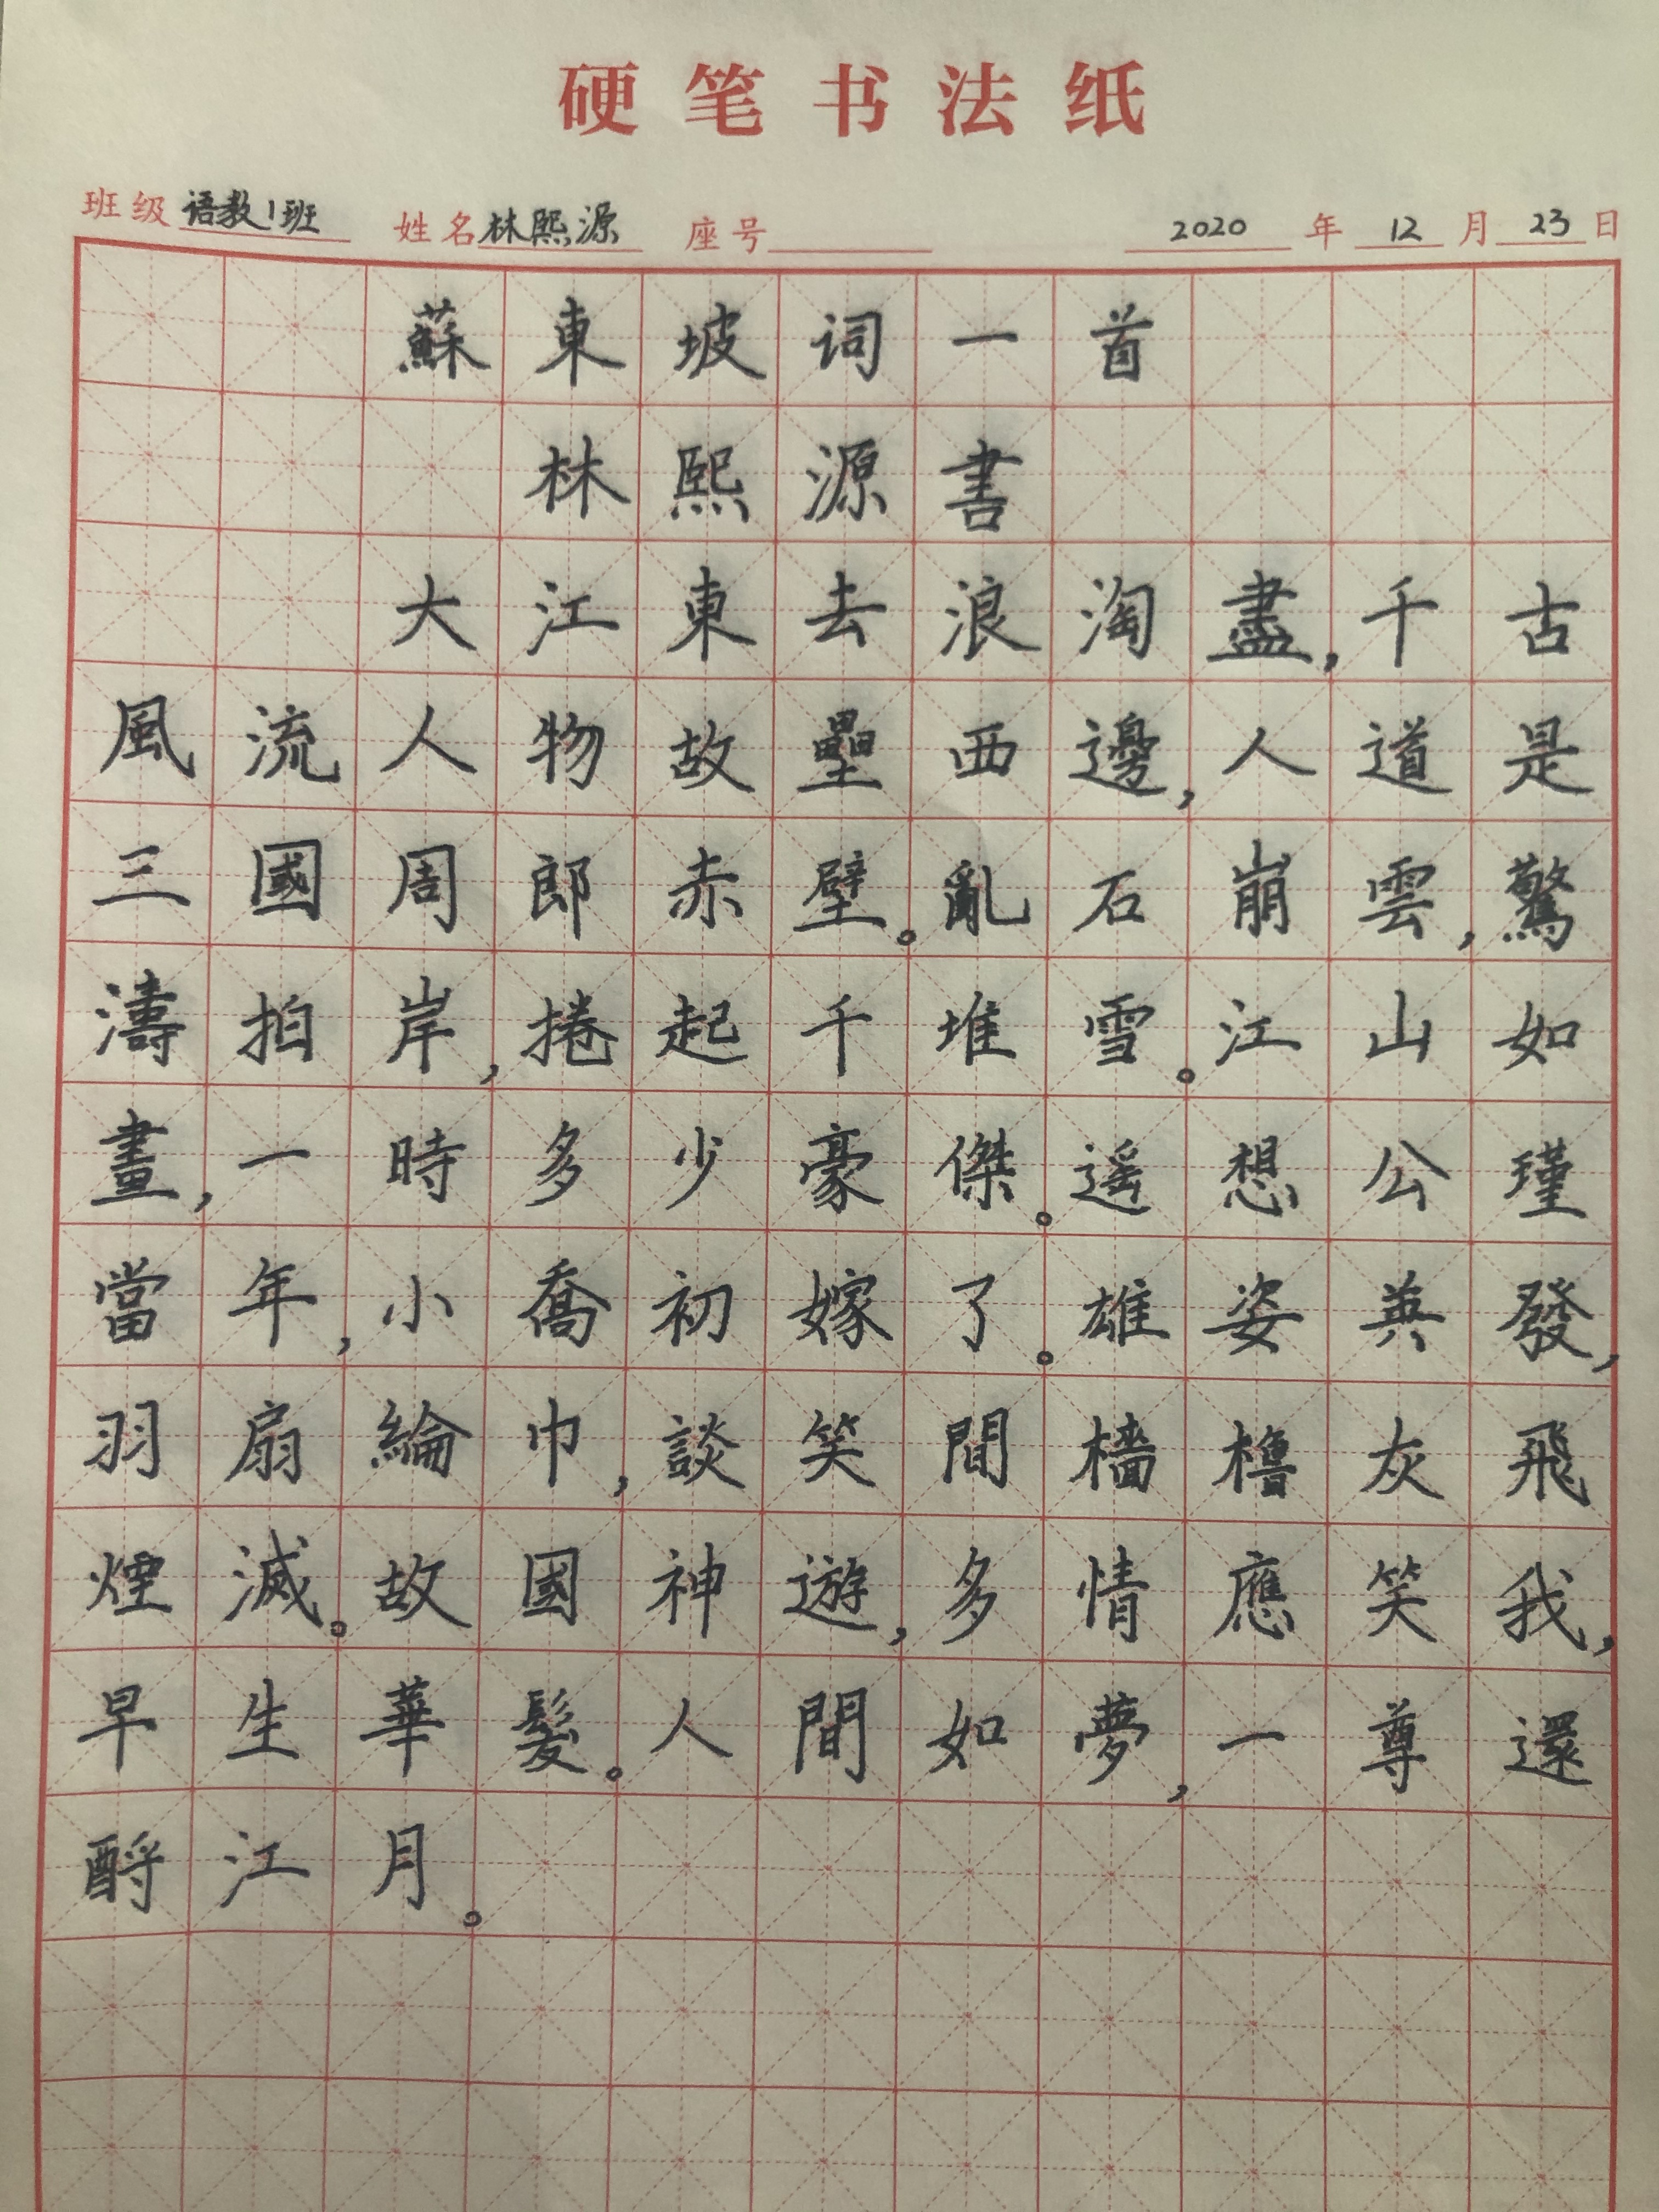 硬笔书法纸
班级 语教1班 姓名 林熙源 座号 2020年12月23日
蘇東坡词一首
林熙源書
大江東去浪淘盡,千古
風流人物故壘西邊,人道是
三國周郎赤壁。亂石崩雲,驚
濤拍岸,捲起千堆雪。江山如
畫,一時多少豪傑。遥想公瑾
當年,小喬初嫁了。雄姿英發,
羽扇綸巾,談笑間檣櫓灰飛
煙滅。故國神遊,多情應笑我,
早生華髮。人間如夢,一尊還
酹江月。